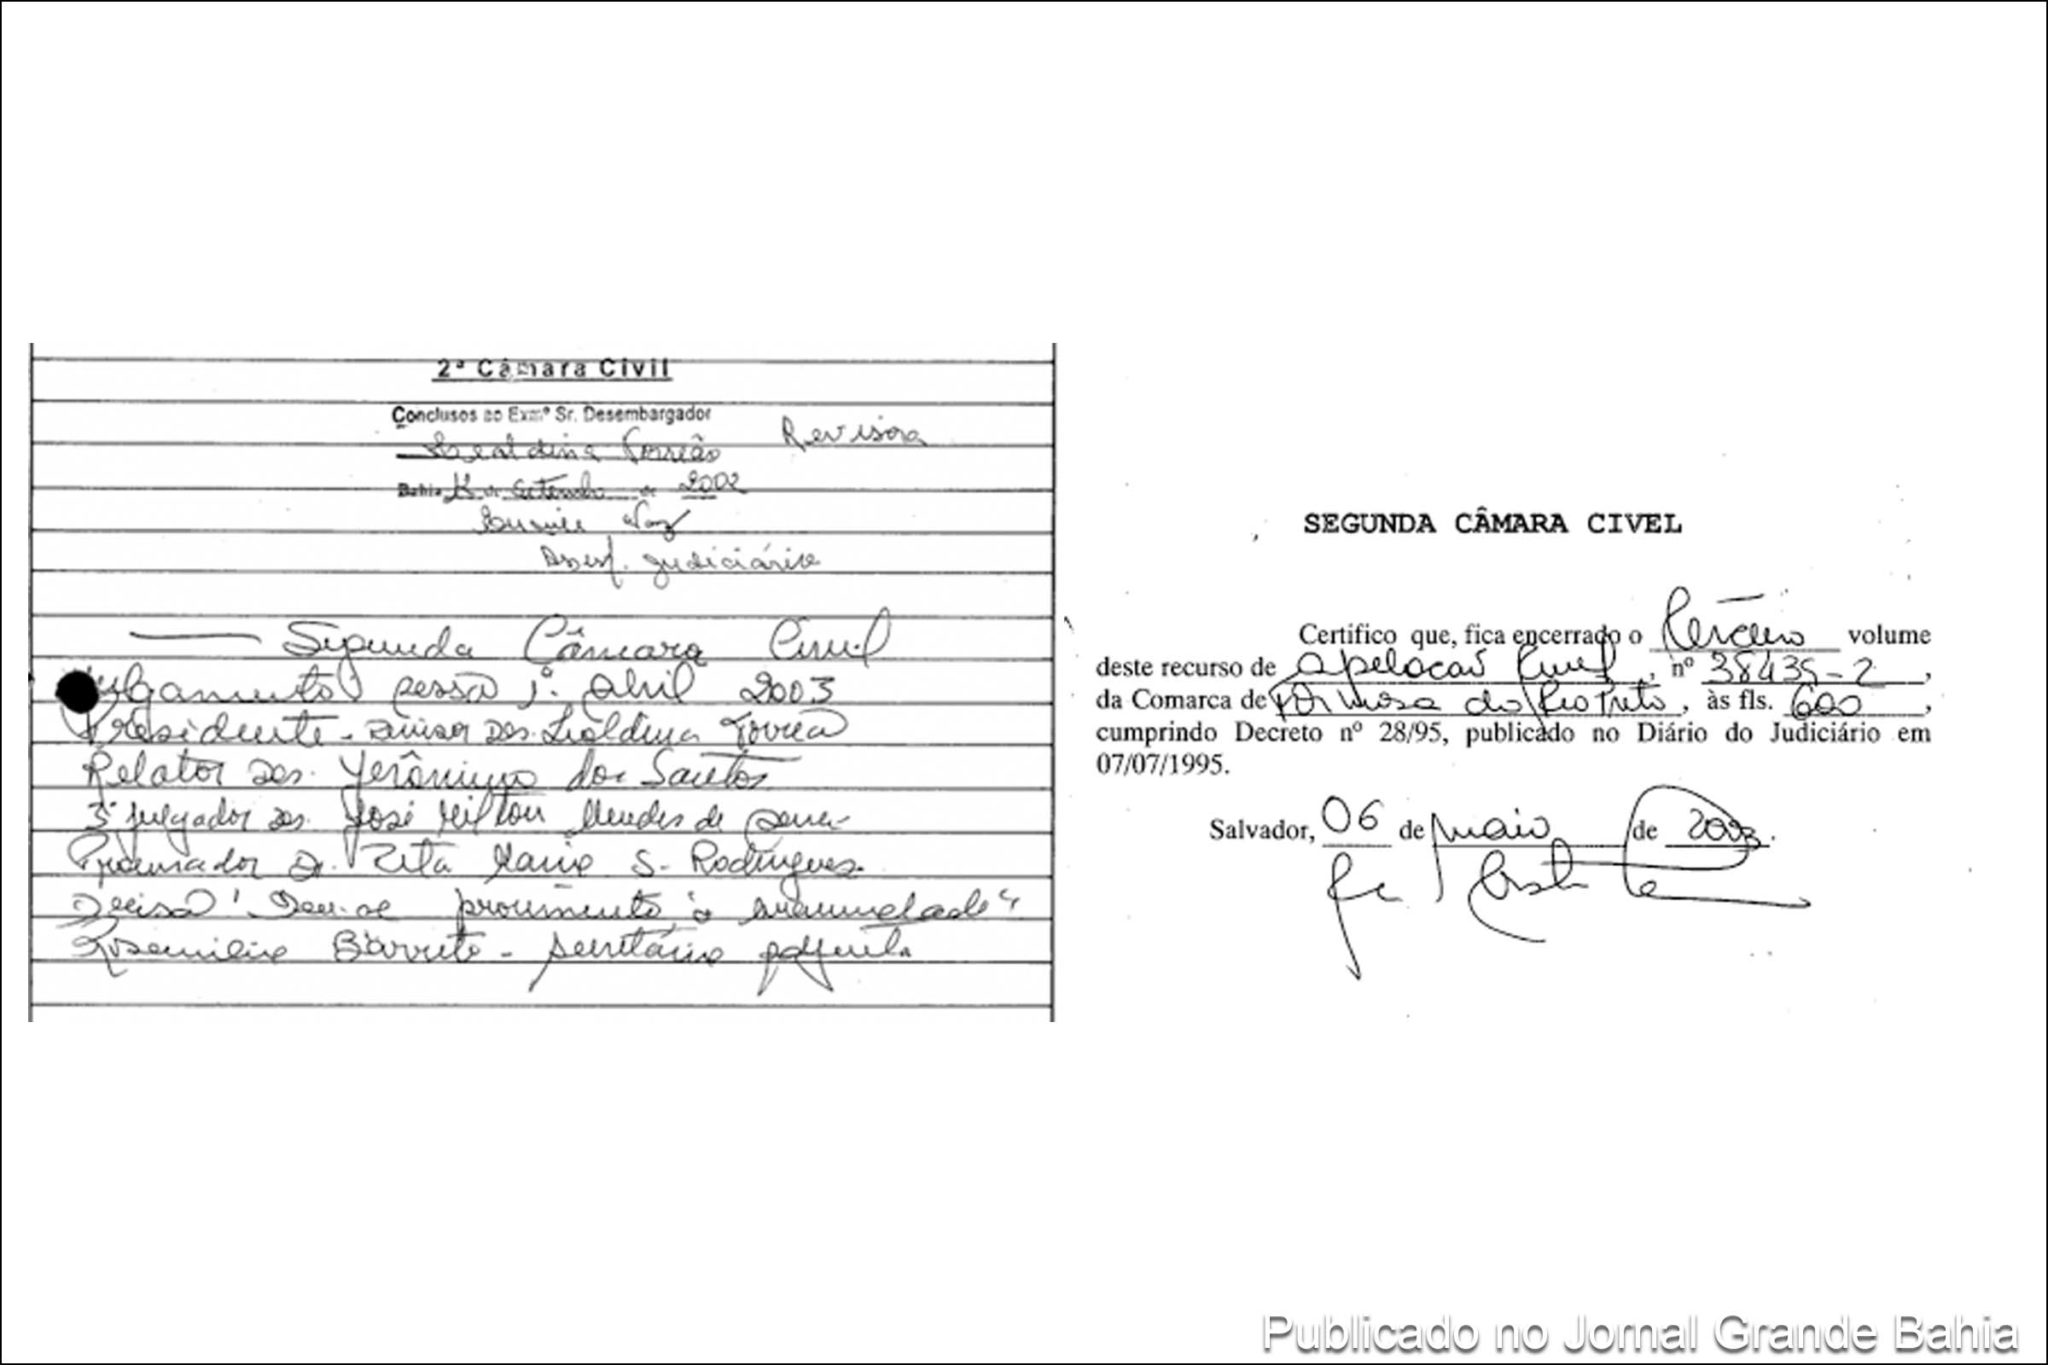 2ª Câmara Civil
Conclusos ao Exmº Sr. Desembargador
Revisora
Bahia de Setembro de 2002
Assesf. judiciária
Segunda Câmara Civil
Julgamento sessão 1º. abril 2003
Presidente - Des. Torreão
Relator Des. Jerônimo dos Santos
3º julgador Des. José Milton Mendes de Sena
Procurador Dr. Zita S. Rodrigues.
Decisão: Deu-se provimento "à unanimidade"
Barreto - secretária adjunta
SEGUNDA CÂMARA CIVEL
Certifico que, fica encerrado o Terceiro volume
deste recurso de Apelação Civel, nº 38435-2,
da Comarca de Formosa do Rio Preto, às fls. 600,
cumprindo Decreto nº 28/95, publicado no Diário do Judiciário em
07/07/1995.
Salvador, 06 de maio de 2003.
Publicado no Jornal Grande Bahia